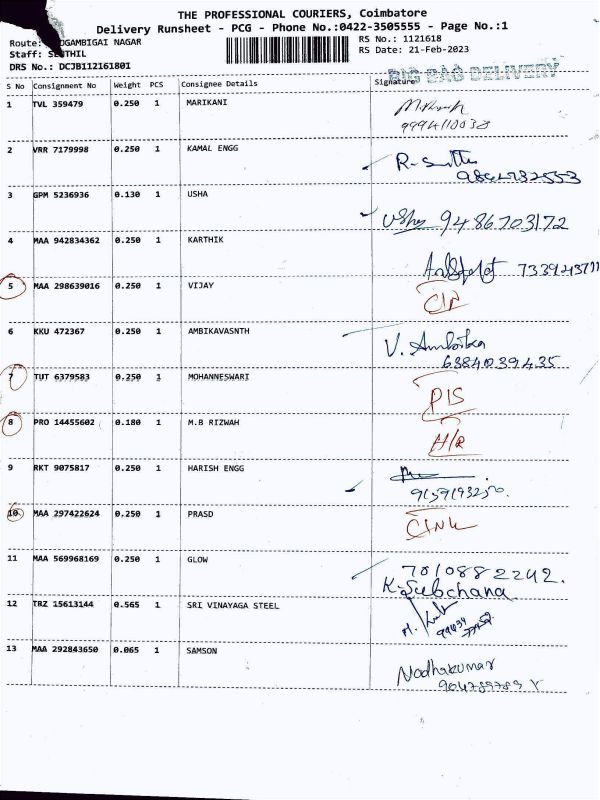 THE PROFESSIONAL COURIERS, Coimbatore
Delivery Runsheet - PCG - Phone No.:0422-3505555 - Page No.:1
Route: OGAMBIGAI NAGAR
RS No.: 1121618
Staff: SENTHIL
RS Date: 21-Feb-2023
DRS No.: DCJB112161801
BIG BAG DELIVERY
S No Consignment No Weight PCS Consignee Details Signature
1 TVL 359479 0.250 1 MARIKANI
9994110038
2 VRR 7179998 0.250 1 KAMAL ENGG
3 GPM 5236936 0.130 1 USHA
Usha 9486703172
4 MAA 942834362 0.250 1 KARTHIK
5 MAA 298639016 0.250 1 VIJAY
6 KKU 472367 0.250 1 AMBIKAVASNTH
V. Ambika
6384039435
7 TUT 6379583 0.250 1 MOHANNESWARI
8 PRO 14455602 0.180 1 M.B RIZWAH
9 RKT 9075817 0.250 1 HARISH ENGG
9159193250.
10 MAA 297422624 0.250 1 PRASD
11 MAA 569968169 0.250 1 GLOW
7010882242.
K. Subchana
12 TRZ 15613144 0.565 1 SRI VINAYAGA STEEL
13 MAA 292843650 0.065 1 SAMSON